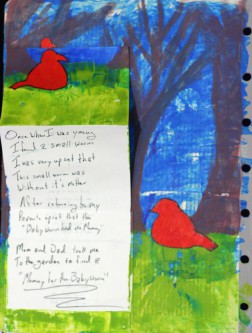 Once when I was young
I find a small worm
I was very upset that
This small worm was
Without it's mother
After returning to my
Parents upset that the
"Baby worm had no Mommy"
Mom and Dad took me
To the garden to find a
"Mommy for the Baby worm"